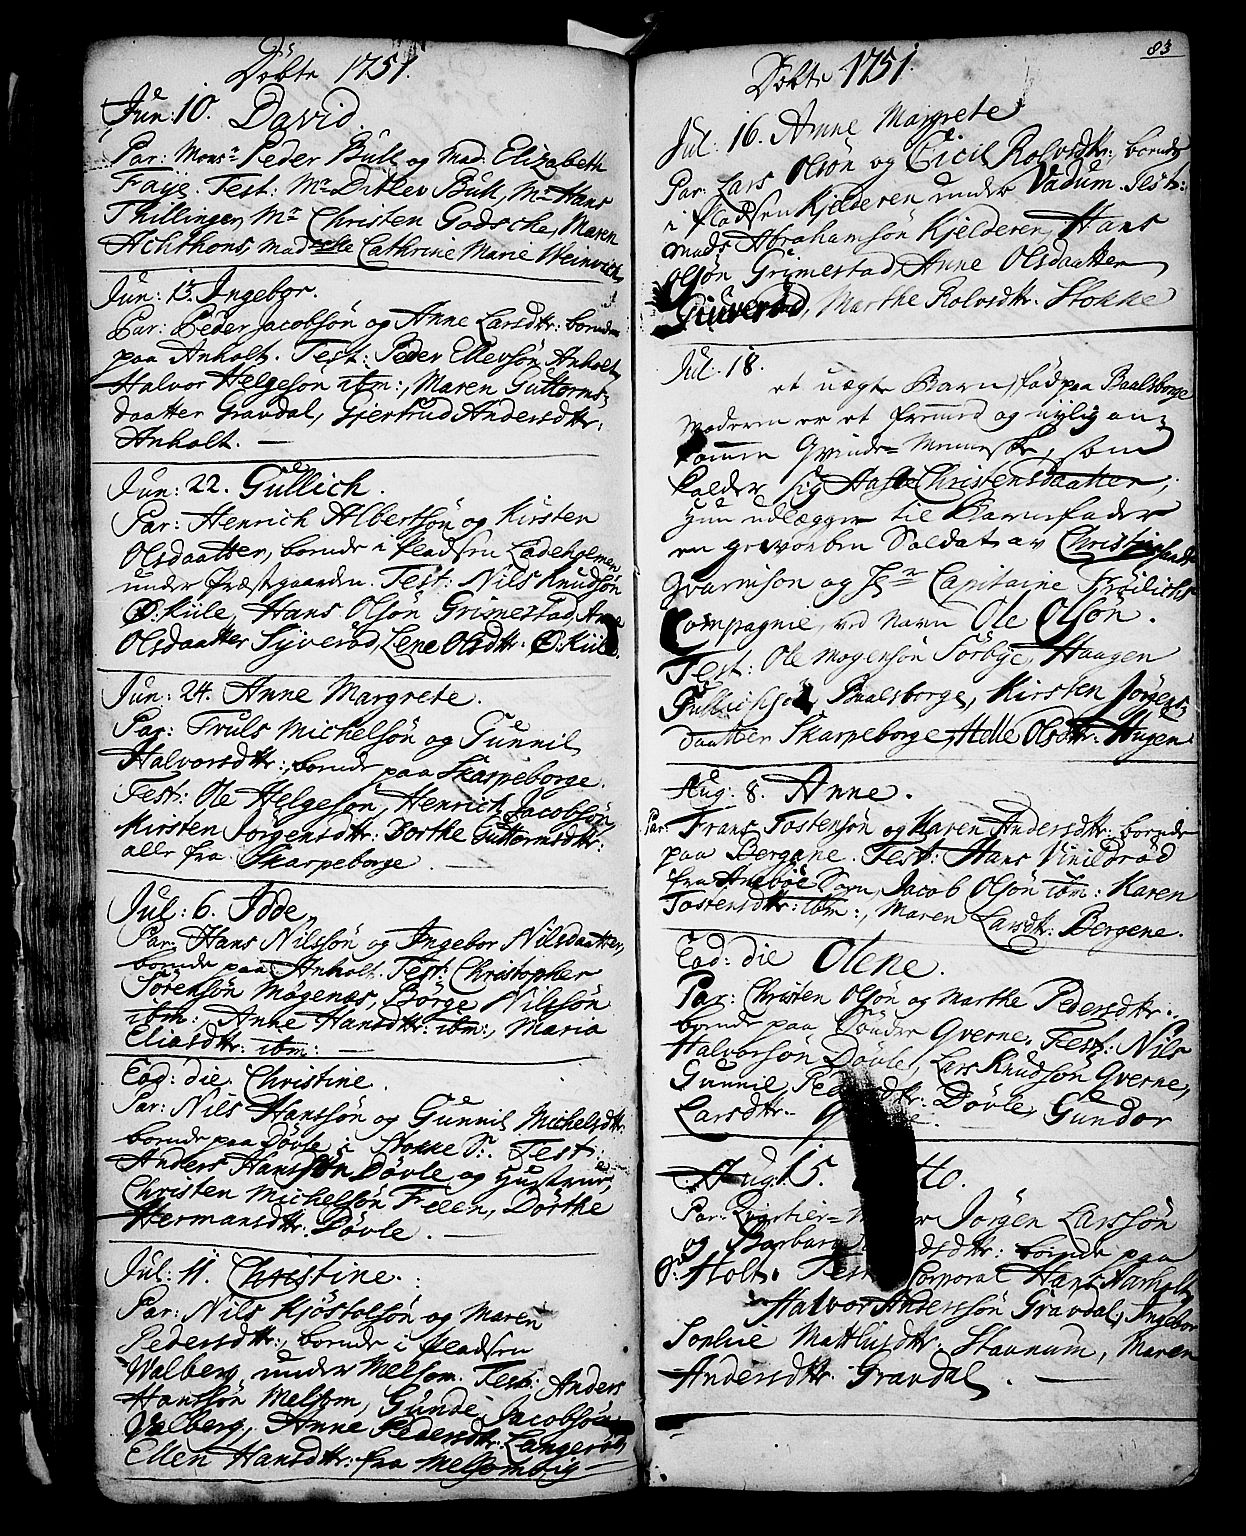 Döbte 1751.
Jun: 10. David.
Par: Monsr Peder Bull og Mad: Elizabeth
Faÿe. Test: Mr Ditlev Bull, Mr Hans
Thillinger, Mr Christen Godsche, Maren
Achthons, Cathrine Marie Weinvich
Jun: 13. Ingebor.
Par: Peder Jacobsön og Anne Larsdtr: boende
paa Anholt. Test: Peder Ellevsön Anholt
Halvor Helgesön ibm:, Maren Guttorms-
daatter Gravdal, Gjertrud Andersdtr:
Anholt.
Jun: 22. Gullich.
Par: Henrich Albertsön og Kirsten
Olsdaatter, boende i pladsen Ladehjemen
under Præstgaarden. Test: Nils Knudsön
Ö: Kule, Hans Olsön Grimestad, Anne
Olsdaatter Syverød, Lene Olsdtr. Ö: Kule.
Jun: 24. Anne Margrete.
Par: Truls Michelsön og Gunnil
Halvorsdtr:, boende paa Skarpeborge.
Test: Ole Helgesön, Henrich Jacobsön,
Kirsten Jörgensdtr: Dorthe Guttormsdtr:
alle fra Skarpeborge
Jul: 6. Idde,
Par: Hans Nilssön og Ingebor Nilsdaatter,
boende paa Anholt. Test: Christopher
Sörensön Mögenæs, Börge Nilssön
ibm:, Anne Hansdtr: ibm:, Maria
Eliasdtr: ibm:
Eod: die. Christine.
Par: Nils Hanssön og Gunnil Michelsdtr:
boende paa Dövle i Stokke S: Test:
Anders Hanssön Dövle og Hustrue,
Christen Michelsön Feen, Dorthe
Hermansdtr: Dövle.
Jul: 11. Christine.
Par: Nils Kjöstolsön og Maren
Pedersdtr:, boende i pladsen
Valberg, under Melsom. Test: Anders
Hanssön Melsom, Gunde Jacobsön
Valberg, Anne Pedersdtr: Langeröe,
Ellen Hansdtr: fra Melsomvig
83
Döbte 1751.
Jul: 16. Anne Margrete
Par: Lars Olsön og Cicil Rolvsdtr: boende
i pladsen Kjelderen under Vadum. Test:
Mads Abrahamsön Kjelderen, Hans
Olsön Grimestad, Anne Olsdaatter
Giuverød, Marthe Rolvsdtr: Stokke
Jul: 18.
et uægte Barn, fød paa Baalsborge
Moderen er et fremmed og nylig an-
kommen Qvinde-Menniske, som
kalder sig Christensdaatter,
hun udlægger til Barnefader
en geworben Soldat av Christiansands
Qvarnison og Hr Capitaine Frölichs
Compagnie, ved Navn Ole Olsön.
Test: Ole Mogensön Sörbye, Haagen
Baalsborge, Kirsten Jörgens-
daatter Skarpeborge, Helle Olsdtr: Hugen
Aug: 8. Anne.
Par: Frans Tostensön og Karen Andersdtr: boende
paa Bergene. Test: Hans Vinildröd
fra Sogn, Jacob Olsön ibm: Karen
Tostensdtr: ibm:, Maren Larsdtr: Bergene.
Eod: die Olene.
Par: Christen Olsön og Marthe Pedersdtr:
boende paa Sönder Qverne. Test: Nils
Halvorsön Dövle, Lars Knudsön Qverne,
Gunnil Pedersdtr: Dövle, Gundor
Larsdtr.
Aug: 15.
Par: Qvartier- Jörgen Larssön
og Barbara boende paa
S: Holt. Test: Corporal Hans Aarholt
Halvor Anderssön Gravdal, Ingebor
Sophie Mathisdtr: Stavnum, Maren
Andersdtr: Gravdal.